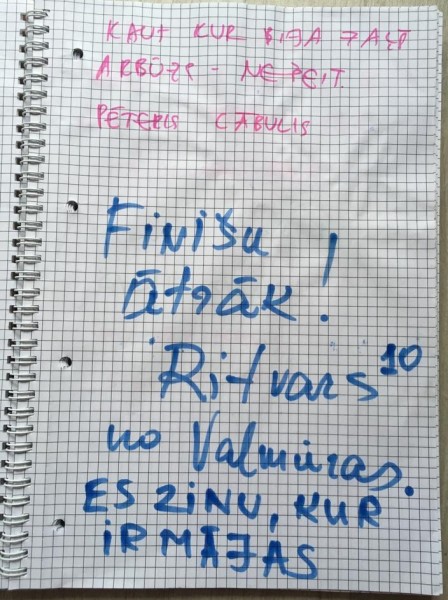 KAUT KUR BIJA ZAĻI
ARBŪZI - NEPEIT.
PĒTERIS CABULIS
Finišu
ātrāk!
Ritvars 10
no Valmieras.
ES ZINU, KUR
IR MĀJAS